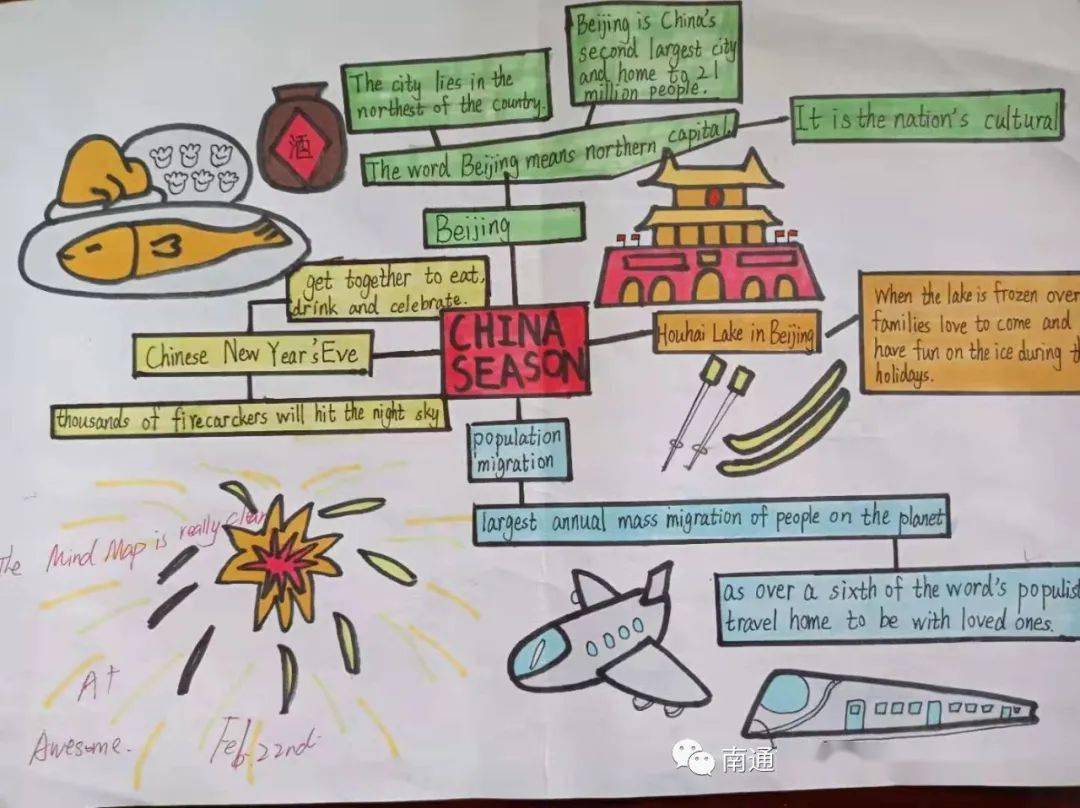 Beijing is China's
second largest city
and home to 21
million people.
The city lies in the
northest of the country.
The word Beijing means northern capital.
It is the nation's cultural
Beijing
酒
get together to eat,
drink and celebrate.
Chinese New Year's Eve
thousands of firecarckers will hit the night sky
CHINA
SEASON
Houhai Lake in Beijing
When the lake is frozen over
families love to come and
have fun on the ice during
holidays.
population
migration
largest annual mass migration of people on the planet
as over a sixth of the word's
travel home to be with loved ones.
The Mind Map is really clear
A+
Awesome.
Feb. 22nd.
南通